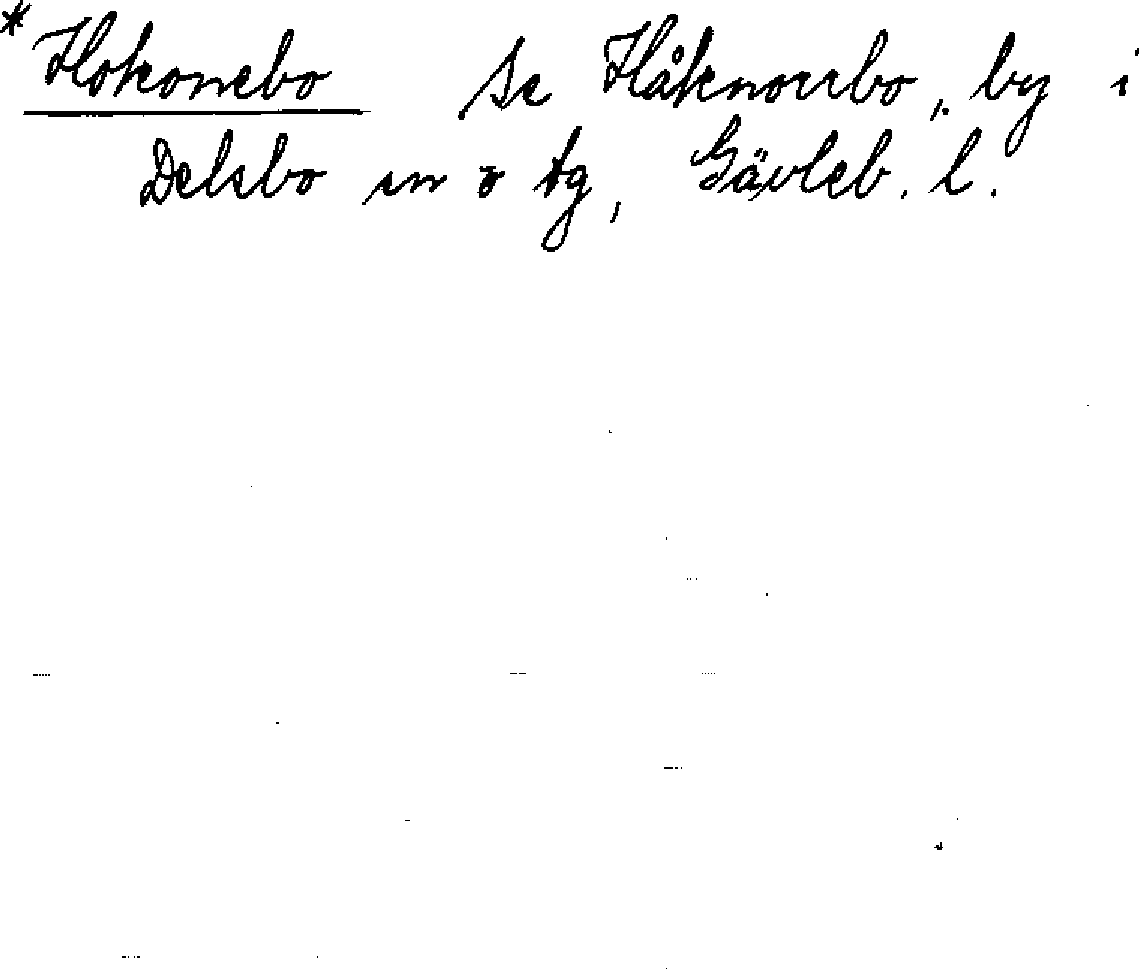 * Hokonebo se Håknorrbo, by i
Delsbo sn o tg, Gävleb. l.